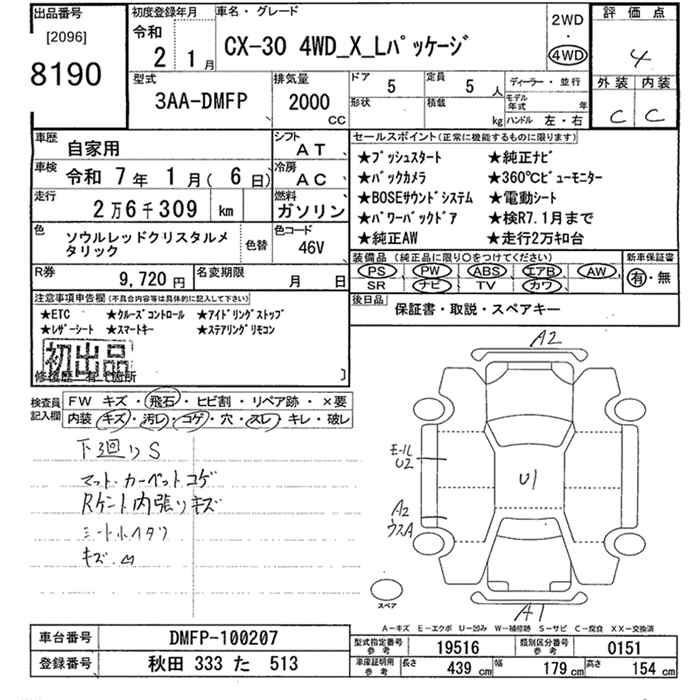 出品番号
[2096]
8190
初度登録年月
令和
2 年 1 月
車名・グレード
CX-30 4WD_X_Lパッケージ
2WD
・
4WD
評価点
4
外装 内装
C C
型式
3AA-DMFP
排気量
2000
CC
ドア 5
定員 5 人
形状
積載 kg
ディーラー・並行
モデル年式 年
ハンドル 左・右
車歴 自家用
シフト AT
車検 令和 7 年 1 月( 6 日)
冷房 AC
走行 2万6千309 km
燃料 ガソリン
色 ソウルレッドクリスタルメタリック
色替
色コード 46V
R券 9,720 円
名変期限 月 日
セールスポイント(正常に機能するものに限ります)
★プッシュスタート ★純正ナビ
★バックカメラ ★360℃ビューモニター
★BOSEサウンドシステム ★電動シート
★パワーバックドア ★検R7.1月まで
★純正AW ★走行2万キロ台
装備品 (純正品に限り○をつけてください)
PS PW ABS エアB AW
SR ナビ TV カワ
新車保証書
有・無
後日品 保証書・取説・スペアキー
注意事項申告欄 (不具合内容等は具体的に記入して下さい)
★ETC ★クルーズコントロール ★アイドリングストップ
★レザーシート ★スマートキー ★ステアリングリモコン
初出品
修復歴 有 て箇所
検査員記入欄
FW キズ・飛石・ヒビ割・リペア跡・×要
内装 キズ・汚レ・コゲ・穴・スレ・キレ・破レ
下廻りS
マット・カーペットコゲ
Rゲート内張りキズ
シート小イタリ
キズ
A2
モール
U2
U1
A2
ウスA
A1
スペア
A-キズ E-エクボ U-凹み W-補修跡 S-サビ C-腐食 XX-交換済
車台番号 DMFP-100207
登録番号 秋田 333 た 513
型式指定番号 参考 19516
類別区分番号 参考 0151
車庫証明用 参考 長さ 439 cm 幅 179 cm 高さ 154 cm